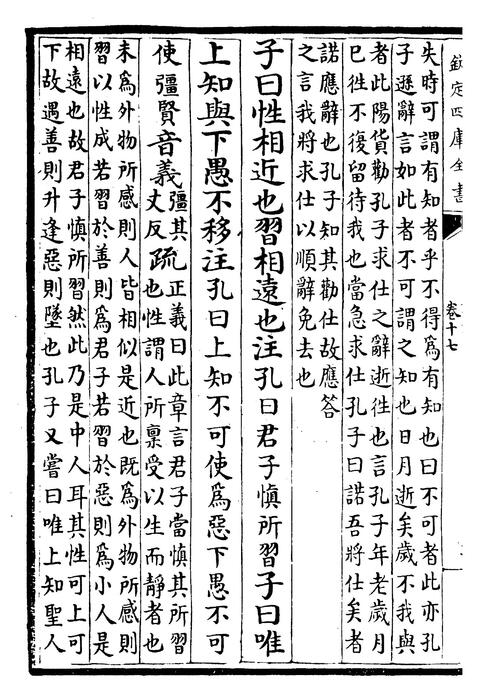 欽定四庫全書
卷十七
失時可謂有知者乎不得為有知也曰不可者此亦孔
子遜辭言如此者不可謂之知也日月逝矣歲不我與
者此陽貨勸孔子求仕之辭逝徃也言孔子年老歲月
已徃不復留待我也當急求仕孔子曰諾吾將仕矣者
諾應辭也孔子知其勸仕故應答
之言我將求仕以順辭免去也
子曰性相近也習相遠也注孔曰君子慎所習子曰唯
上知與下愚不移注孔曰上知不可使為惡下愚不可
使彊賢音義彊其丈反疏正義曰此章言君子當慎其所習
也性謂人所禀受以生而靜者也
未為外物所感則人皆相似是近也既為外物所感則
習以性成若習於善則為君子若習於惡則為小人是
相遠也故君子慎所習然此乃是中人耳其性可上可
下故遇善則升逢惡則墜也孔子又嘗曰唯上知聖人